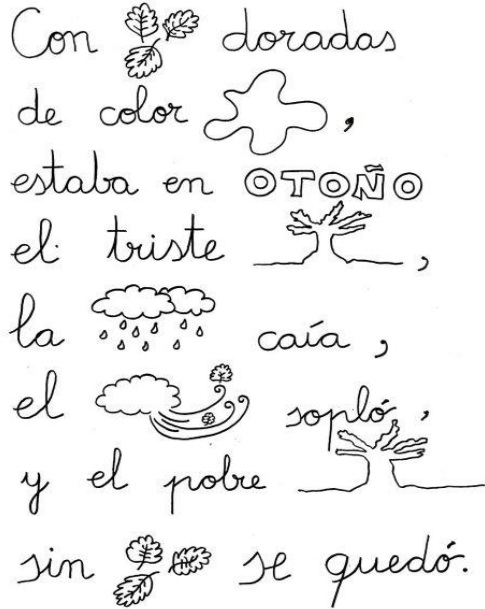 Con doradas
de color ,
estaba en OTOÑO
el triste ,
la caía ,
el sopló ,
y el pobre
sin se quedó.